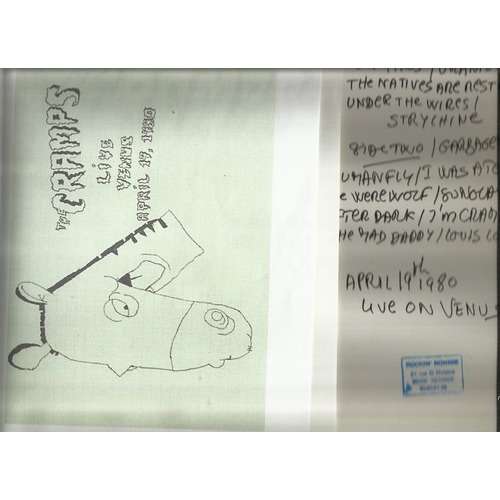 THE CRAMPS
LIVE
VENUS
APRIL 19, 1980
THE NATIVES ARE REST
UNDER THE WIRES/
STRYCHINE
SIDE TWO / GARBAGE
UMANFLY/I WAS A TE
WEREWOLF/SUNGLA
TER DARK/I'M CRAM
HE MAD DADDY/LOUIS LO
APRIL 19th 1980
LIVE ON VENUS